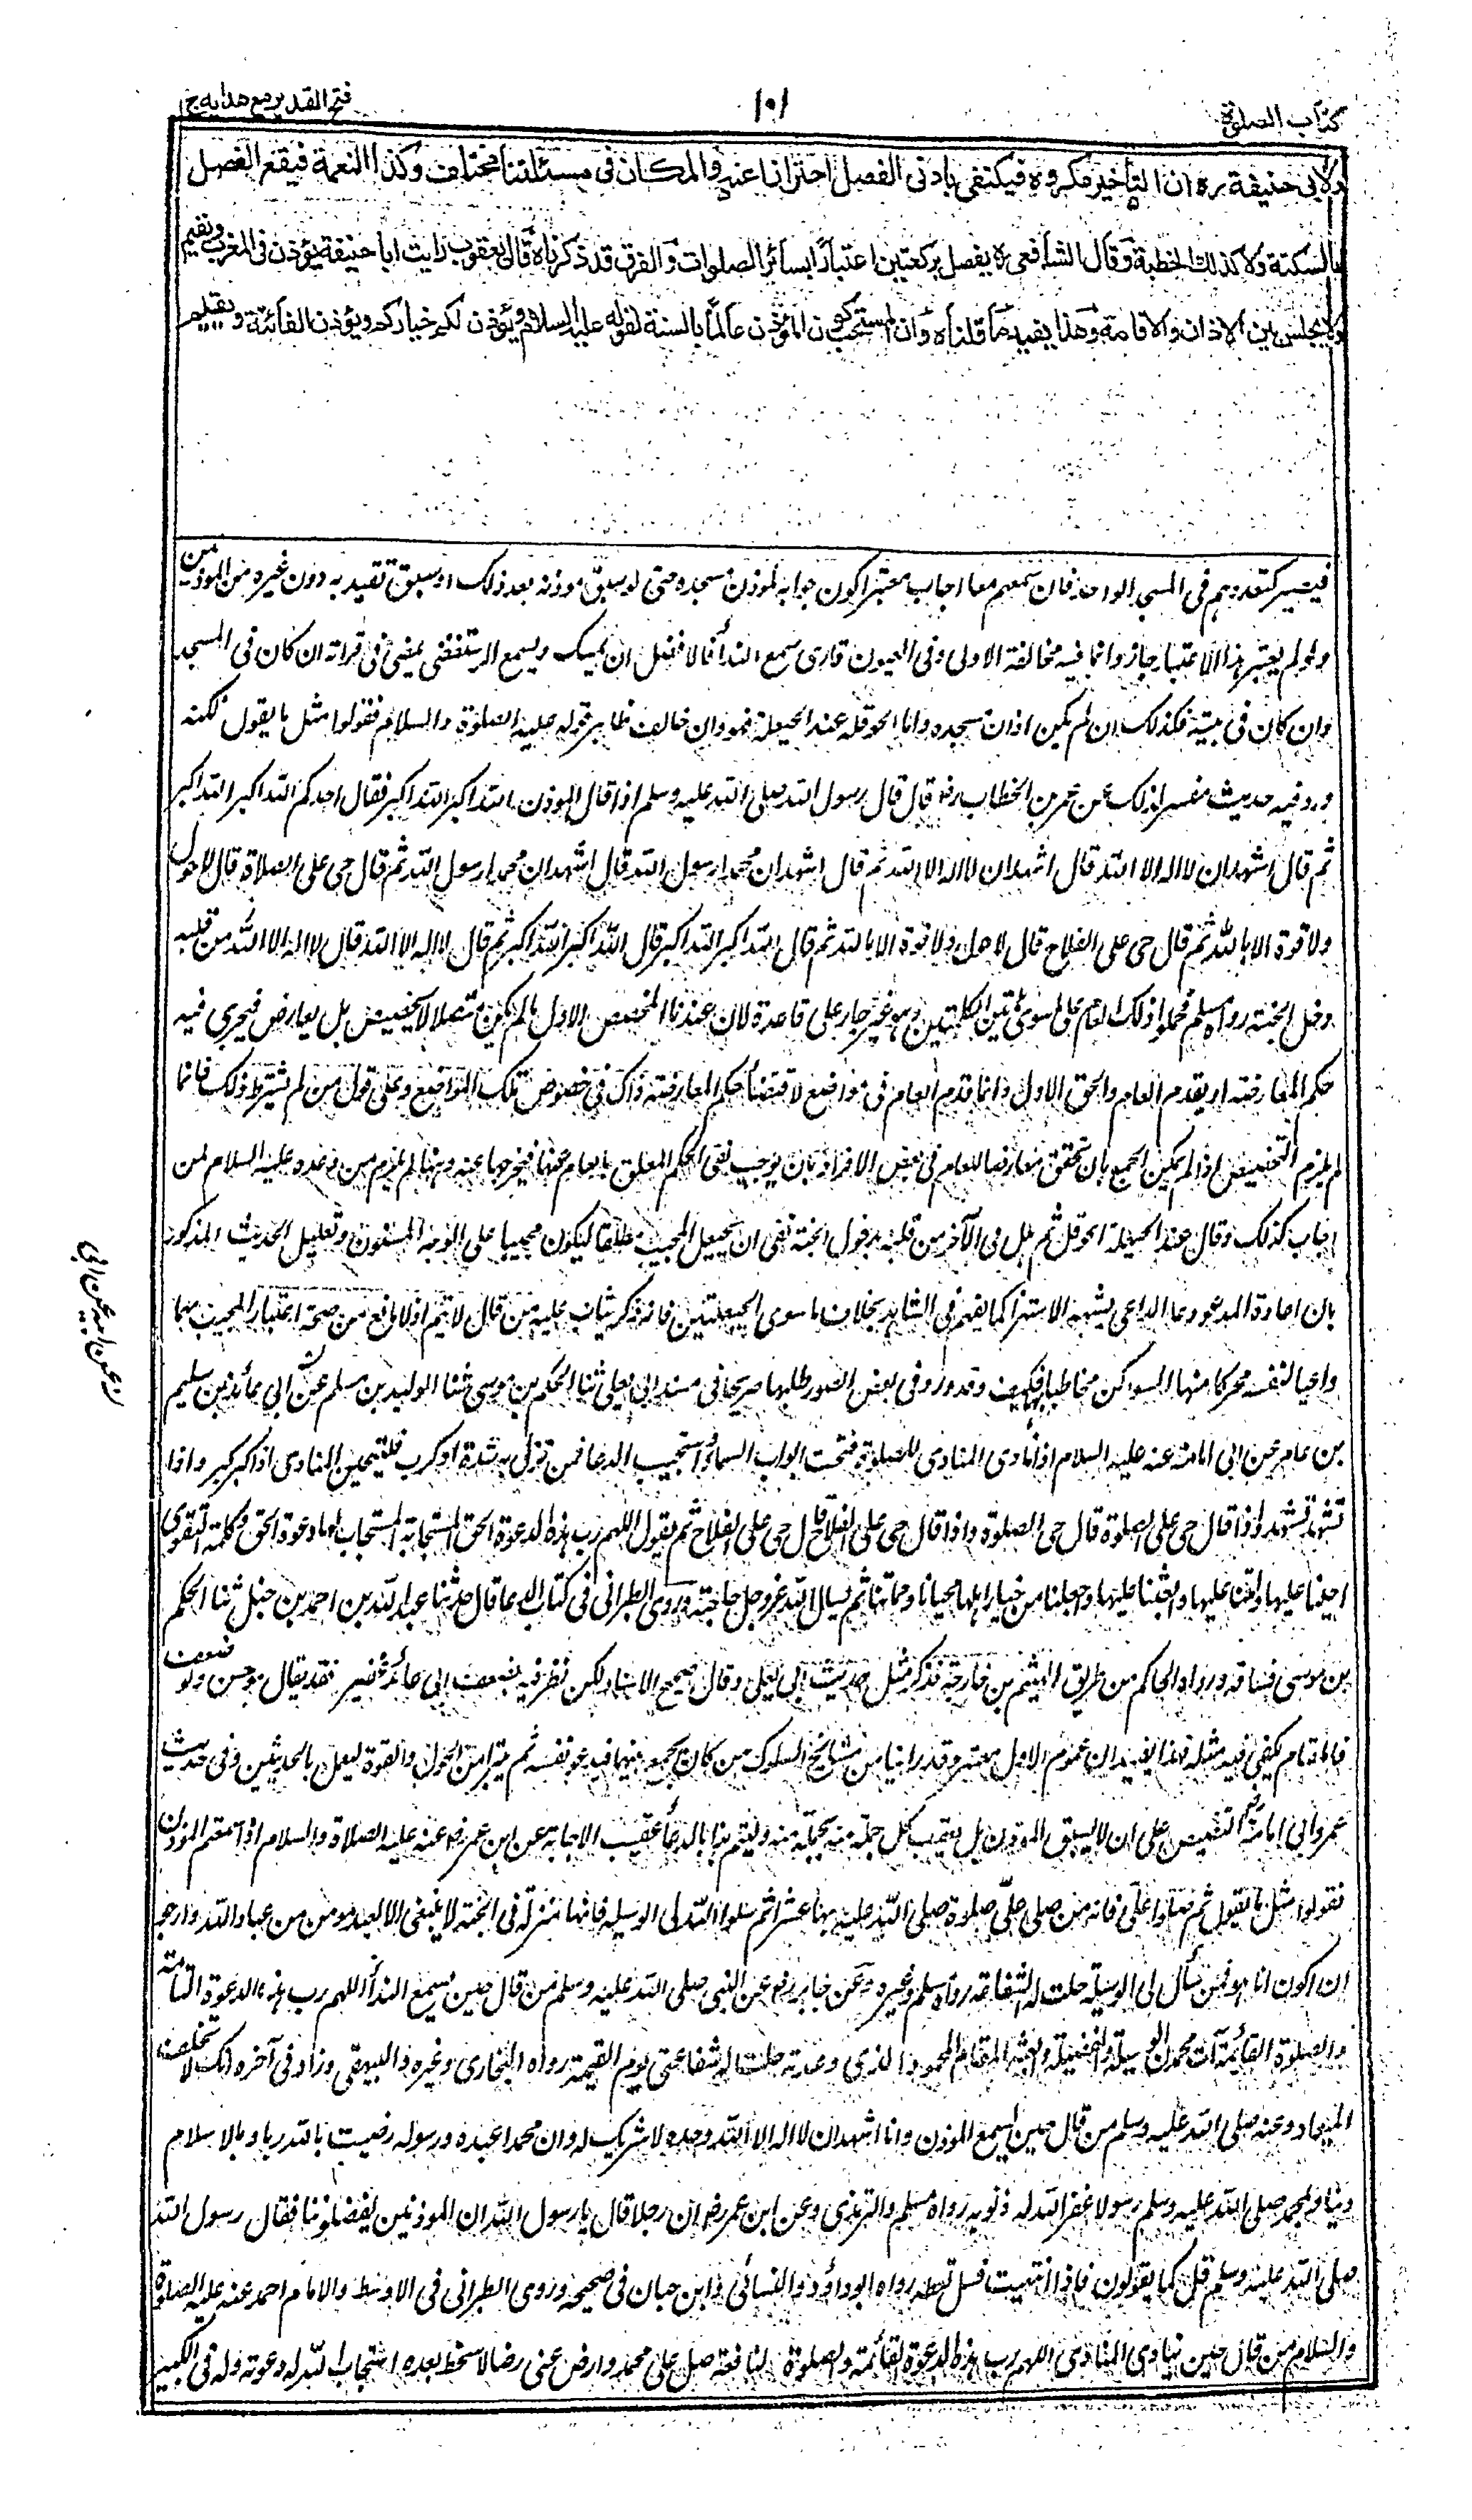 كتاب الصلوة
١٠١
فتح القدير مع هدايه ج ١
ولابى حنيفة ره ان التأخير مكروه فيكتفى بادنى الفصل احترازا عنه والمكان فى مسئلتنا مختلف وكذا النغمة فيقع الفصل
بالسكتة ولا كذلك الخطبة وقال الشافعى ره يفصل بركعتين اعتبارا بسائر الصلوات والفرق قد ذكرناه قال يعقوب رايت ابا حنيفة يؤذن فى المغرب ويقيم
ولا يجلس بين الاذان والاقامة وهذا يفيد ما قلناه وان المستحب كون المؤذن عالما بالسنة لقوله عليه السلام ويؤذن لكم خياركم ويؤذن الفائتة ويقيم
فيتيسر كتعددهم فى المسجد الواحد فان سمعهم معا اجاب معتبرا كون جوابه لموذن مسجده حتى لو سبق موذنه بعد ذلك او سبق تقيد به دون غيره من الموذنين
ولو لم يعتبر هذا الاعتبار جاز وانما فيه مخالفة الاولى وفى العيون قارى سمع النداء فالافضل ان يمسك ويسمع الرستغفنى يمضى فى قراته ان كان فى المسجد
وان كان فى بيته فكذلك ان لم يكن اذان مسجده واما الحوقلة عند الحيعلة فهو وان خالف ظاهر قوله عليه الصلوة والسلام فقولوا مثل ما يقول لكنه
ورد فيه حديث مفسر لذلك عن عمر بن الخطاب رض قال قال رسول الله صلى الله عليه وسلم اذا قال الموذن الله اكبر الله اكبر فقال احدكم الله اكبر الله اكبر
ثم قال اشهد ان لا اله الا الله قال اشهد ان لا اله الا الله ثم قال اشهد ان محمدا رسول الله قال اشهد ان محمدا رسول الله ثم قال حى على الصلاة قال لا حول
ولا قوة الا بالله ثم قال حى على الفلاح قال لا حول ولا قوة الا بالله ثم قال الله اكبر الله اكبر قال الله اكبر الله اكبر ثم قال لا اله الا الله قال لا اله الا الله من قلبه
دخل الجنة رواه مسلم فحملوا ذلك العام على ما سوى هاتين الكلمتين وهو غير جار على قاعدة لان عندنا المخصص الاول ما لم يكن متصلا لا يخصص بل يعارض فيجرى فيه
حكم المعارضة او يقدم العام والحق الاول وانما قدم العام فى مواضع لاقتضاء حكم المعارضة ذاك فى خصوص تلك المواضع وعلى قول من لم يشترط ذلك فانما
لم يلزم التخصيص اذا لم يمكن الجمع بان تحقق معارضا للعام فى بعض الافراد بان يوجب نفى الحكم المعلق بالعام عنها فيخرجها عنه وههنا لم يلزم من وعده عليه السلام لمن
اجاب كذلك وقال عند الحيعلة الحوقلة ثم هلل فى الآخر من قلبه بدخول الجنة نفى ان يحيعل المجيب مطلقا ليكون مجيبا على الوجه المسنون وتعليل الحديث المذكور
بان اعادة المدعو دعاء الداعى يشبه الاستهزا كما يفهم فى الشاهد بخلاف ما سوى الحيعلتين فانه ذكر يثاب عليه من قال لا يتم اذ لا مانع من صحة اعتبار المجيب بهما
داعيا لنفسه محركا منها السواكن مخاطبا لها فكيف وقد ورد فى بعض الصور طلبها صريحا فى مسند ابى يعلى ثنا الحكم بن موسى ثنا الوليد بن مسلم عن ابى عائذ بن سليم
بن عامر عن ابى امامة عنه عليه السلام اذا نادى المنادى للصلوة فتحت ابواب السماء واستجيب الدعا فمن نزل به شدة او كرب فليتحين المنادى اذا كبر كبر واذا
تشهد تشهد واذا قال حى على الصلوة قال حى على الصلوة واذا قال حى على الفلاح قال حى على الفلاح ثم يقول اللهم رب هذه الدعوة الحق المستجابة المستجاب لها دعوة الحق وكلمة التقوى
احينا عليها وامتنا عليها وابعثنا عليها واجعلنا من خيار اهلها محيانا ومماتنا ثم يسال الله عز وجل حاجته وروى الطبرانى فى كتاب الدعا قال حدثنا عبد الله بن احمد بن حنبل ثنا الحكم
بن موسى فساقه ورواه الحاكم من طريق الهيثم بن خارجة فذكر مثل حديث ابى يعلى وقال صحيح الاسناد لكن نظر فيه بضعف ابى عائذ عفير فقد يقال هو حسن ولو ضعف
فالمقام يكفى فيه مثله فهذا يفيد ان عموم الاول معتبر وقد راينا من مشايخ السلوك من كان يجمع بينهما فيدعو نفسه ثم يتبرا من الحول والقوة ليعمل بالحديثين وفى حديث
عمر وابى امامة التنصيص على ان لا يسبق الموذن بل يعقب كل جملة منه بجملة منه وليتم هذا بالدعاء عقيب الاجابة عن ابن عمر رض عنه عليه الصلاة والسلام اذا سمعتم الموذن
فقولوا مثل ما يقول ثم صلوا على فانه من صلى على صلوة صلى الله عليه بها عشرا ثم سلوا الله لى الوسيلة فانها منزلة فى الجنة لا ينبغى الا لعبد مومن من عباد الله وارجو
ان اكون انا هو فمن سأل لى الوسيلة حلت له الشفاعة رواه مسلم وغيره وعن جابر رض عن النبى صلى الله عليه وسلم من قال حين يسمع النداء اللهم رب هذه الدعوة التامة
والصلوة القائمة آت محمدن الوسيلة والفضيلة وابعثه المقام المحمود الذى وعدته حلت له شفاعتى يوم القيمة رواه البخارى وغيره والبيهقى وزاد فى آخره انك لا تخلف
الميعاد وعنه صلى الله عليه وسلم من قال حين يسمع الموذن وانا اشهد ان لا اله الا الله وحده لا شريك له وان محمدا عبده ورسوله رضيت بالله ربا وبالاسلام
دينا وبمحمد صلى الله عليه وسلم رسولا غفر الله له ذنوبه رواه مسلم والترمذى وعن ابن عمر رض ان رجلا قال يا رسول الله ان الموذنين يفضلوننا فقال رسول الله
صلى الله عليه وسلم قل كما يقولون فاذا انتهيت فسل تعطه رواه ابو داؤد والنسائى وابن حبان فى صحيحه وروى الطبرانى فى الاوسط والامام احمد عنه عليه الصلوة
والسلام من قال حين ينادى المنادى اللهم رب هذه الدعوة القائمة والصلوة النافعة صل على محمد وارض عنى رضا لا سخط بعده استجاب الله له دعوته وله فى الكبير